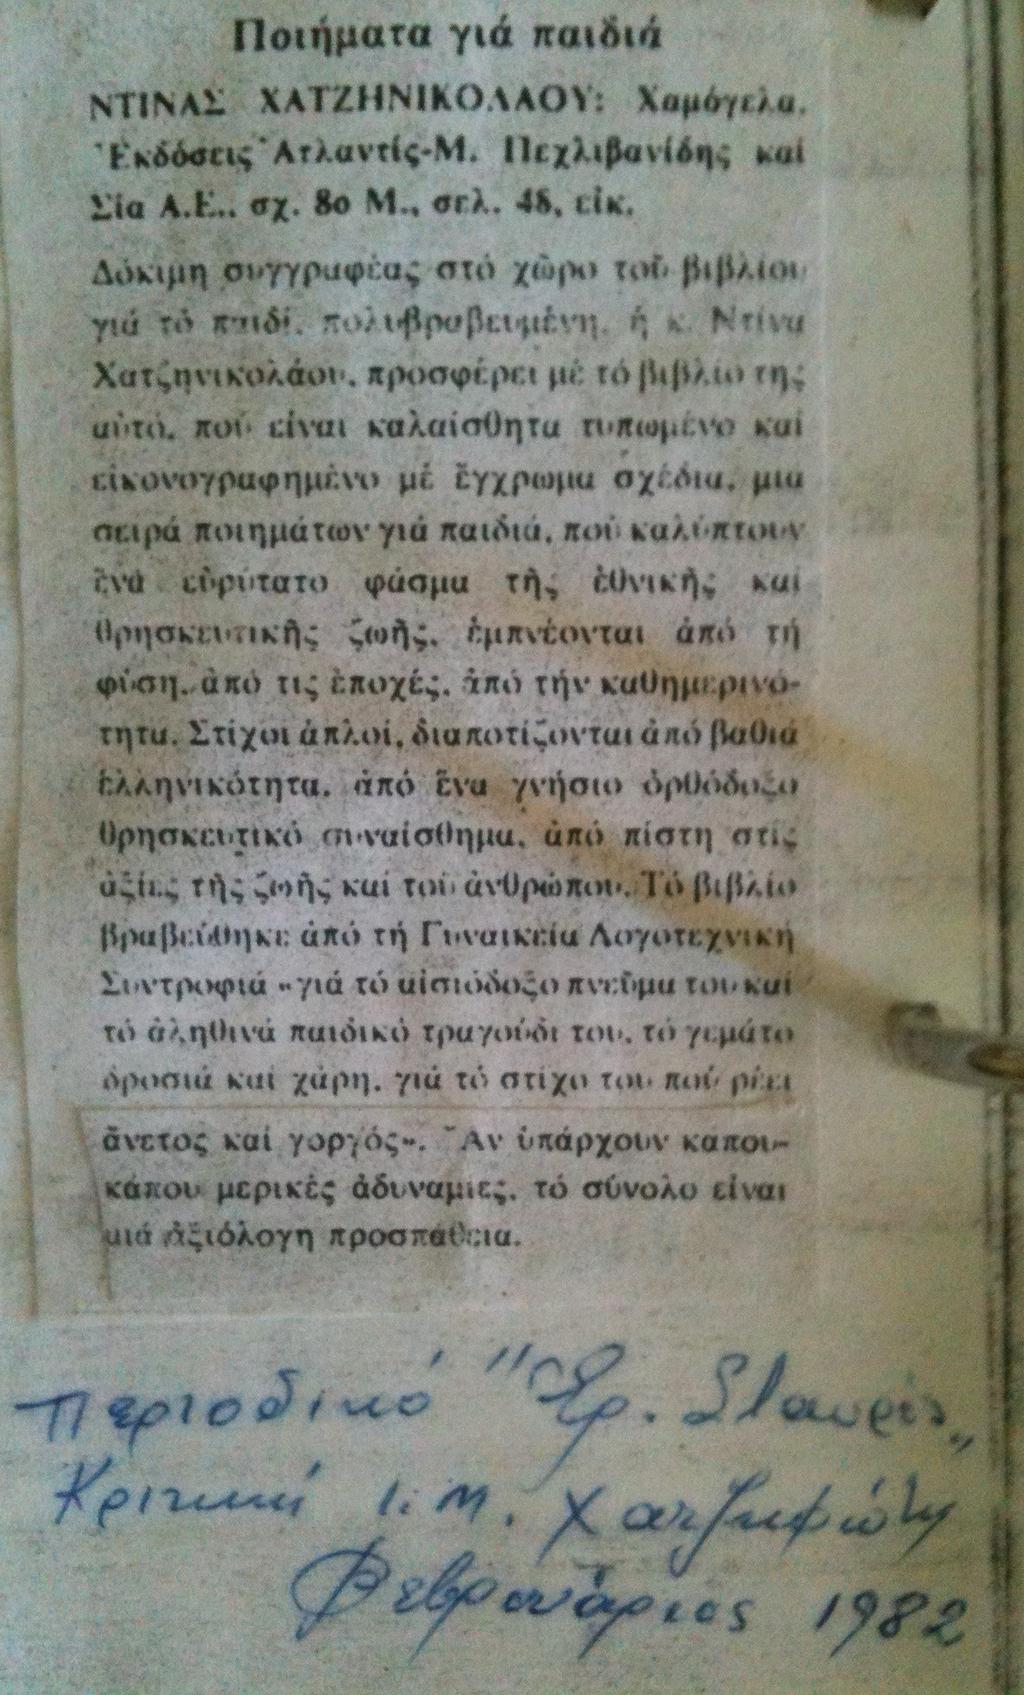 Ποιήματα γιά παιδιά
ΝΤΙΝΑΣ ΧΑΤΖΗΝΙΚΟΛΑΟΥ: Χαμόγελα.
Ἐκδόσεις Ἀτλαντίς-Μ. Πεχλιβανίδης καί
Σία Α.Ε., σχ. 8ο Μ., σελ. 48, εἰκ.
Δόκιμη συγγραφέας στό χῶρο τοῦ βιβλίου
γιά τό παιδί, πολυβραβευμένη, ἡ κ. Ντίνα
Χατζηνικολάου, προσφέρει μέ τό βιβλίο της
αὐτό, πού εἶναι καλαίσθητα τυπωμένο καί
εἰκονογραφημένο μέ ἔγχρωμα σχέδια, μια
σειρά ποιημάτων γιά παιδιά, πού καλύπτουν
ἕνα εὐρύτατο φάσμα τῆς ἐθνικῆς καί
θρησκευτικῆς ζωῆς, ἐμπνέονται ἀπό τή
φύση, ἀπό τις ἐποχές, ἀπό τήν καθημερινό-
τητα. Στίχοι ἁπλοί, διαποτίζονται ἀπό βαθιά
ἑλληνικότητα, ἀπό ἕνα γνήσιο ὀρθόδοξο
θρησκευτικό συναίσθημα, ἀπό πίστη στίς
ἀξίες τῆς ζωῆς καί τοῦ ἀνθρώπου. Τό βιβλίο
βραβεύθηκε ἀπό τή Γυναικεία Λογοτεχνική
Συντροφιά «γιά τό αἰσιόδοξο πνεῦμα του καί
τό ἀληθινά παιδικό τραγούδι του, τό γεμάτο
δροσιά καί χάρη, γιά τό στίχο του πού ρέει
ἄνετος καί γοργός». Ἄν ὑπάρχουν κάπου-
κάπου μερικές ἀδυναμίες, τό σύνολο εἶναι
μιά ἀξιόλογη προσπάθεια.
Περιοδικό "Ερ. Σταυρός„
Κριτική Ι.Μ. Χατζηφώτη
Φεβρουάριος 1982